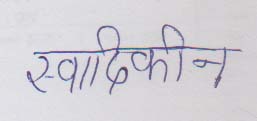 स्वादिकीन